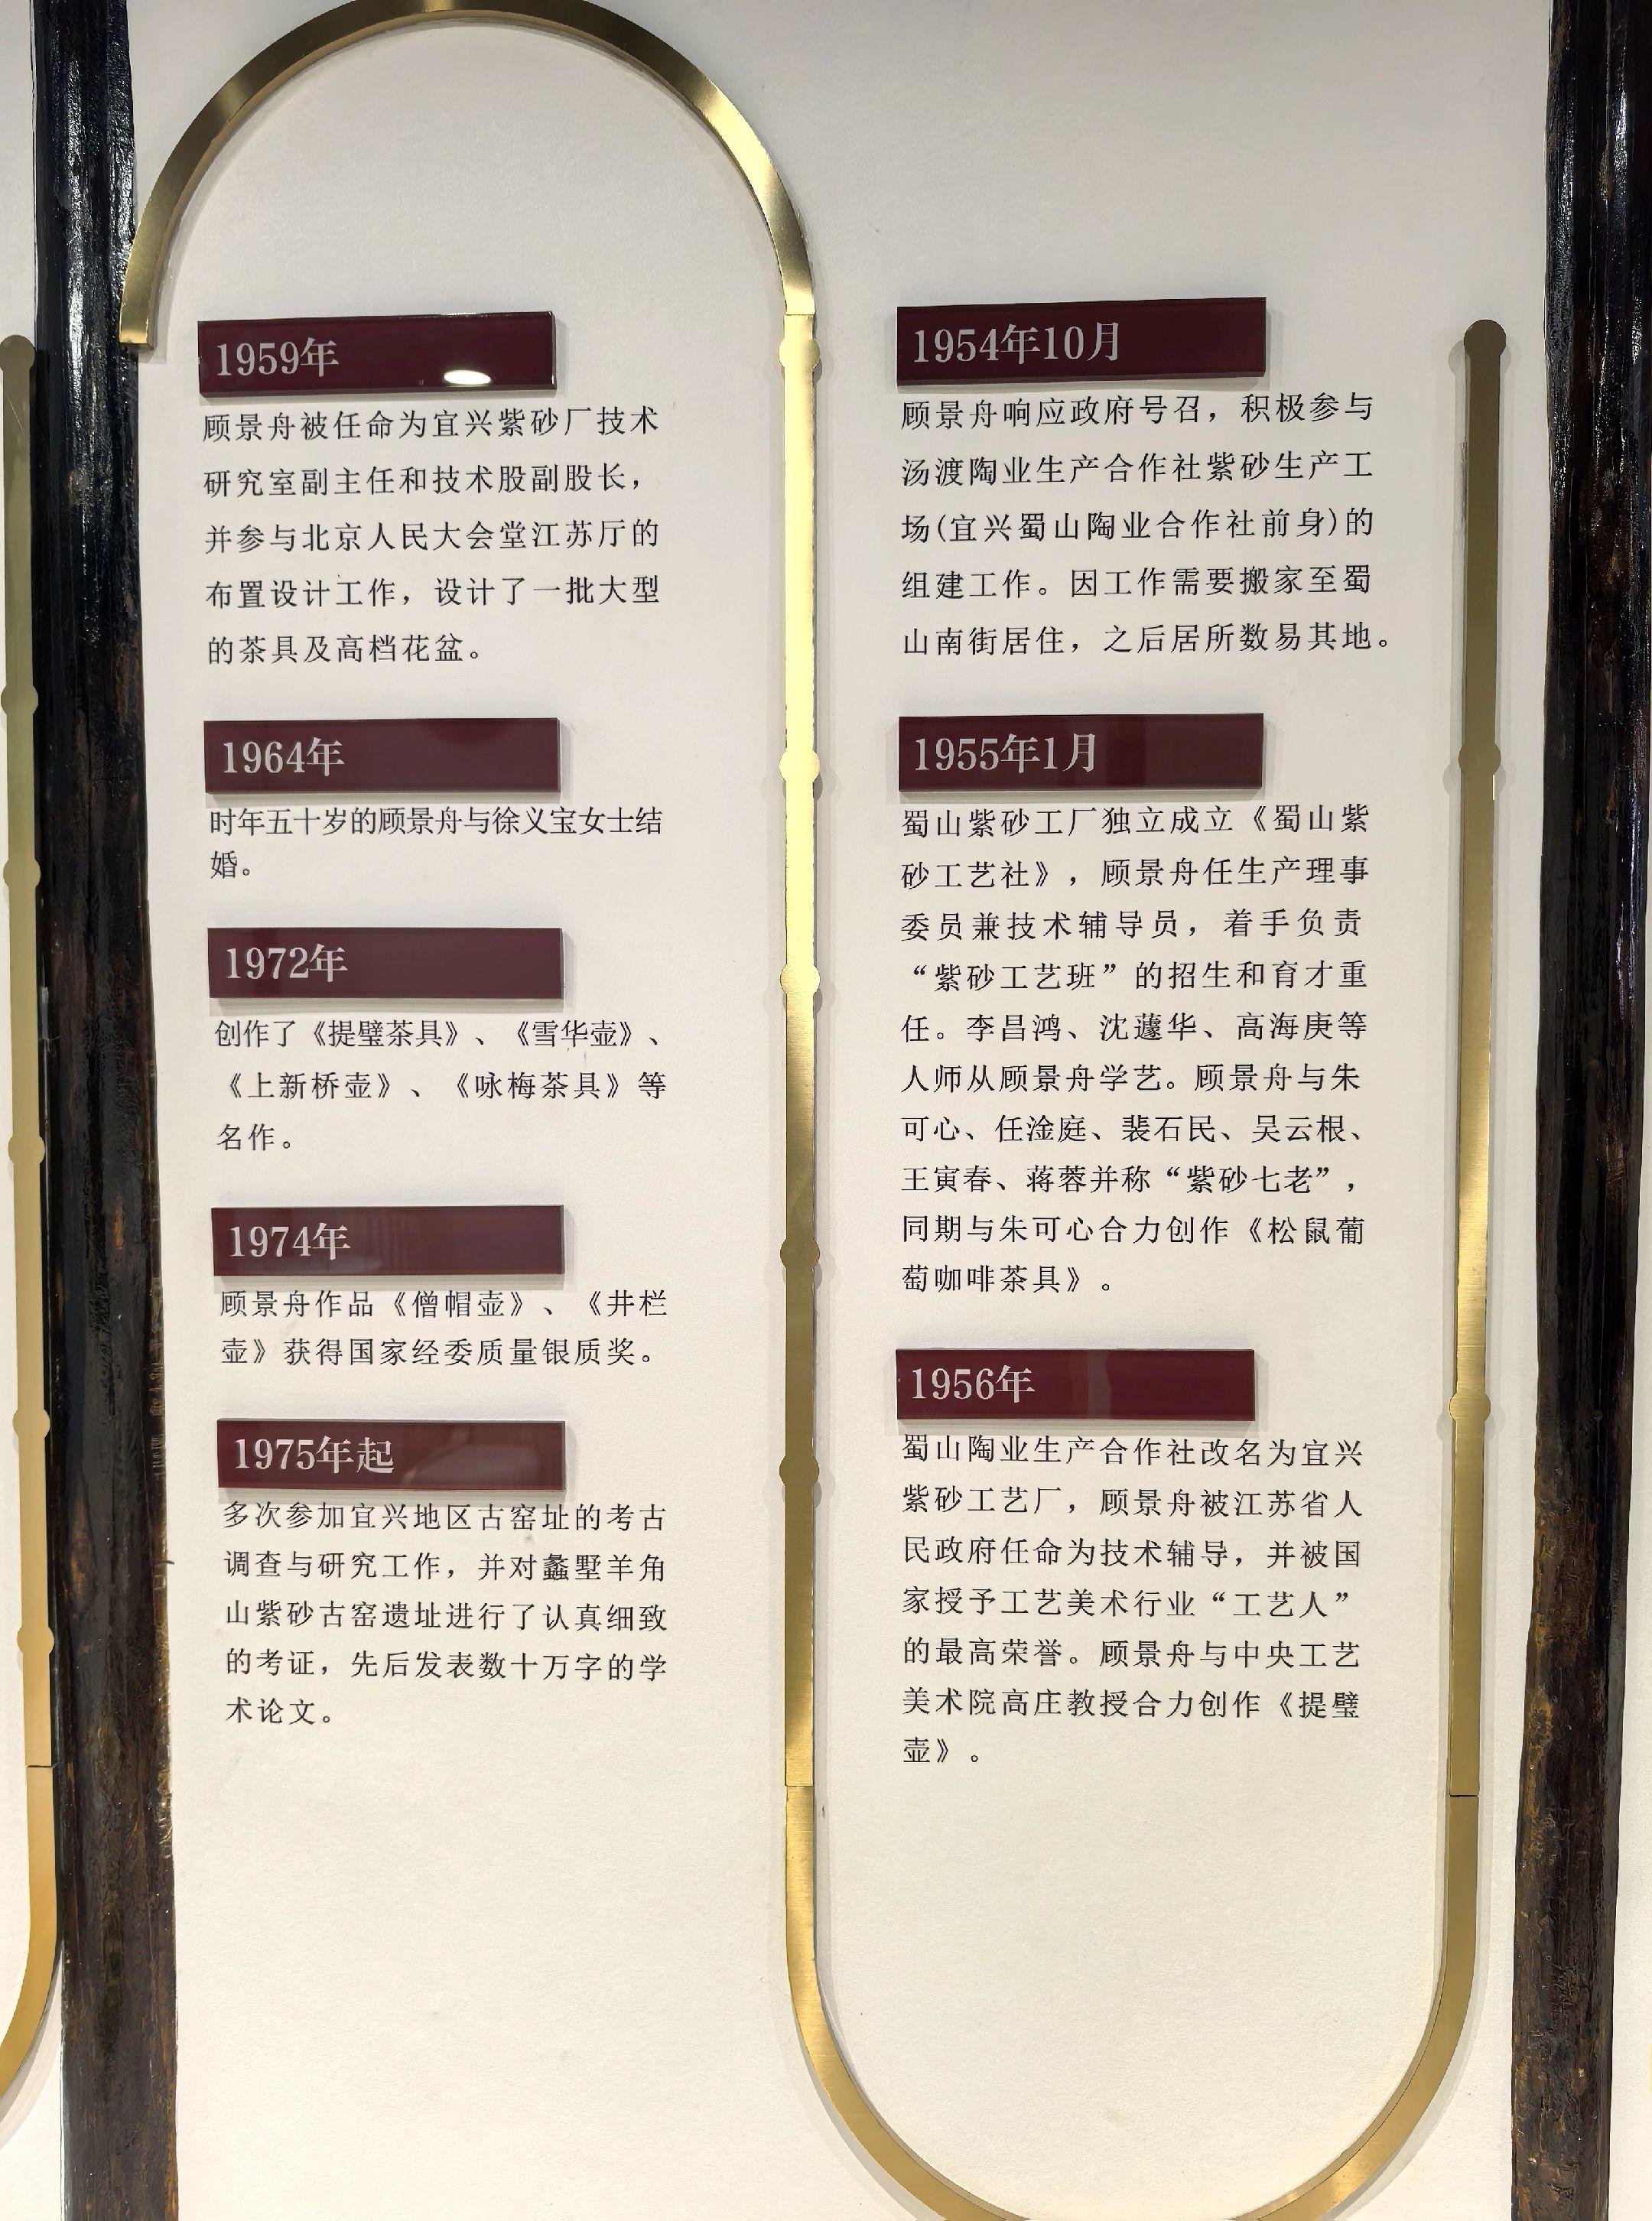 1954年10月
顾景舟响应政府号召，积极参与
汤渡陶业生产合作社紫砂生产工
场(宜兴蜀山陶业合作社前身)的
组建工作。因工作需要搬家至蜀
山南街居住，之后居所数易其地。
1955年1月
蜀山紫砂工厂独立成立《蜀山紫
砂工艺社》，顾景舟任生产理事
委员兼技术辅导员，着手负责
“紫砂工艺班”的招生和育才重
任。李昌鸿、沈蘧华、高海庚等
人师从顾景舟学艺。顾景舟与朱
可心、任淦庭、裴石民、吴云根、
王寅春、蒋蓉并称“紫砂七老”，
同期与朱可心合力创作《松鼠葡
萄咖啡茶具》。
1956年
蜀山陶业生产合作社改名为宜兴
紫砂工艺厂，顾景舟被江苏省人
民政府任命为技术辅导，并被国
家授予工艺美术行业“工艺人”
的最高荣誉。顾景舟与中央工艺
美术院高庄教授合力创作《提璧
壶》。
1959年
顾景舟被任命为宜兴紫砂厂技术
研究室副主任和技术股副股长，
并参与北京人民大会堂江苏厅的
布置设计工作，设计了一批大型
的茶具及高档花盆。
1964年
时年五十岁的顾景舟与徐义宝女士结
婚。
1972年
创作了《提璧茶具》、《雪华壶》、
《上新桥壶》、《咏梅茶具》等
名作。
1974年
顾景舟作品《僧帽壶》、《井栏
壶》获得国家经委质量银质奖。
1975年起
多次参加宜兴地区古窑址的考古
调查与研究工作，并对蠡墅羊角
山紫砂古窑遗址进行了认真细致
的考证，先后发表数十万字的学
术论文。